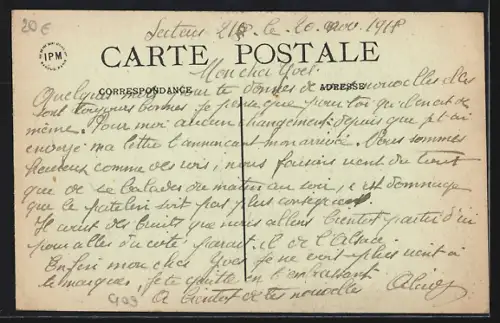 20€
Secteur 216 le 20 nov. 1918
IPM
CARTE POSTALE
Mon cher Yves.
CORRESPONDANCE ADRESSE
Quelques mots pour te donner de mes nouvelles elles
sont toujours bonnes je pense que pour toi qu'il en est de
même. Pour moi aucun changement depuis que je t'ai
envoyé ma lettre t'annonçant mon arrivée. Nous sommes
heureux comme des rois, nous foutons rien du tout
que de se balader du matin au soir, c'est dommage
que le patelin soit pas plus conséquent
Il court des bruits que nous allons bientot partir d'ici
pour aller du coté parait-il de l'Alsace.
Enfin mon cher Yves je ne vois plus rien à
te marquer, je te quitte en t'embrassant
A bientot de tes nouvelles